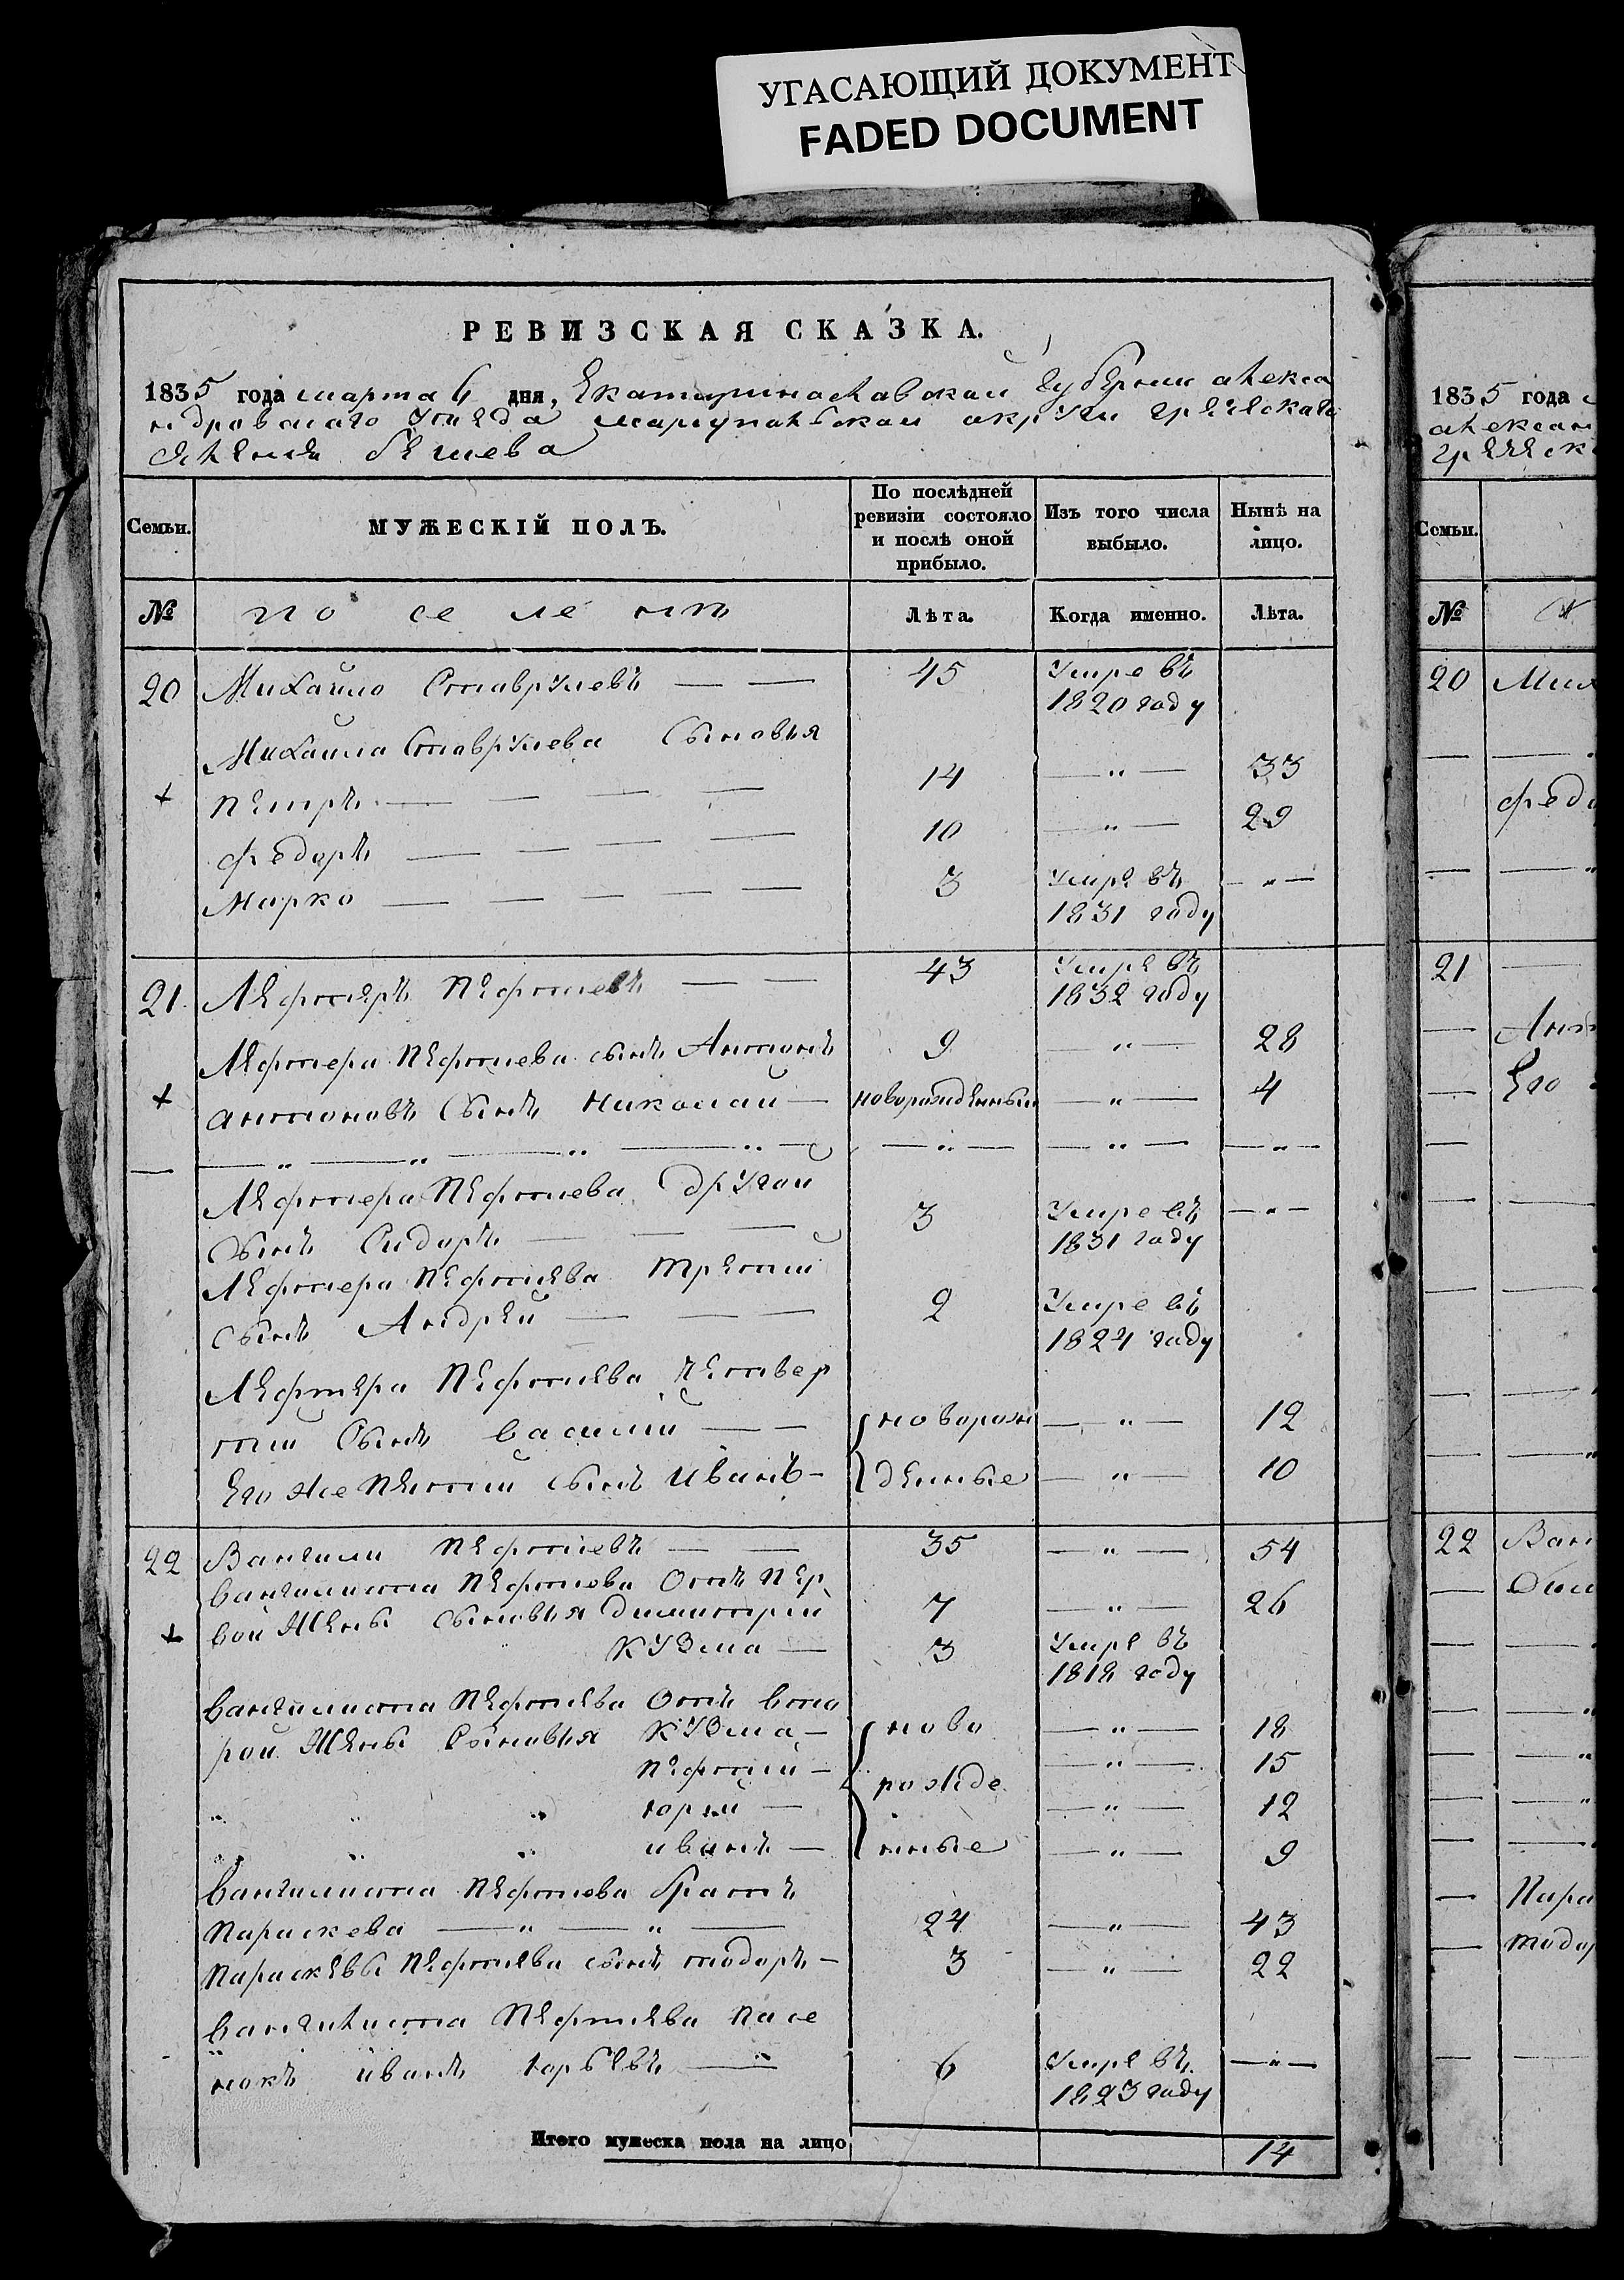 УГАСАЮЩИЙ ДОКУМЕНТ
FADED DOCUMENT
РЕВИЗСКАЯ СКАЗКА.
1835 года марта 6 дня, Екатеринославской губернии алекса
ндровского уезда мариупольской округи греческаго
селения бешева
Семьи.
МУЖЕСКІЙ ПОЛЪ.
По послѣдней ревизіи состояло и послѣ оной прибыло.
Изъ того числа выбыло.
Нынѣ на лицо.
№ поселянъ Лѣта. Когда именно. Лѣта.
20 Михайло Ставруневъ 45 Умре въ
1820 году
Михаила Ставрунева Сыновья
+ Петръ 14 — „ — 33
Федоръ 10 — „ — 29
Марко 3 Умре въ — „ —
1831 году
21. Лефтеръ Пефтіевъ 43 Умре въ
1832 году
Лефтера Пефтиева сынъ Антонъ 9 — „ — 28
+ антоновъ Сынъ Николай новорожденный — „ — 4
— „ — „ — „ — „ —
Лефтера Пефтиева другой
Сынъ Сидоръ 3 Умре въ — „ —
1831 году
Лефтера Пефтіева третий
сынъ Андрей 2 Умре въ
1824 году
Лефтера Пефтіева четвер
тий Сынъ василий новорож — „ — 12
Его же пятий сынъ иванъ денные — „ — 10
22 Вангели Пефтіевъ 35 — „ — 54
вангелиста Пефтиева Отъ пер
+ вой Жены сыновья димитрий 7 — „ — 26
Кузма 3 Умре въ
1818 году
вангилиста Пефтіева Отъ вто
рой Жены Сыновья Кузма ново — „ — 18
Пефтий — „ — 15
„ „ „ юрий рожде — „ — 12
„ „ „ иванъ нные — „ — 9
вангилиста Пефтиева братъ
Параскева — „ — „ — 24 — „ — 43
Параскевы Пефтіева сынъ тодоръ 3 — „ — 22
вангилиста Пефтіева пасе
нокъ иванъ юрьевъ 6 Умре въ — „ —
1823 году
Итого мужеска пола на лицо 14
1835 года
алексан
греческ
Семьи.
№
20 Мих
— —
федо
— —
21 —
— Ант
— Его
22 Ван
— Пара
— тодор